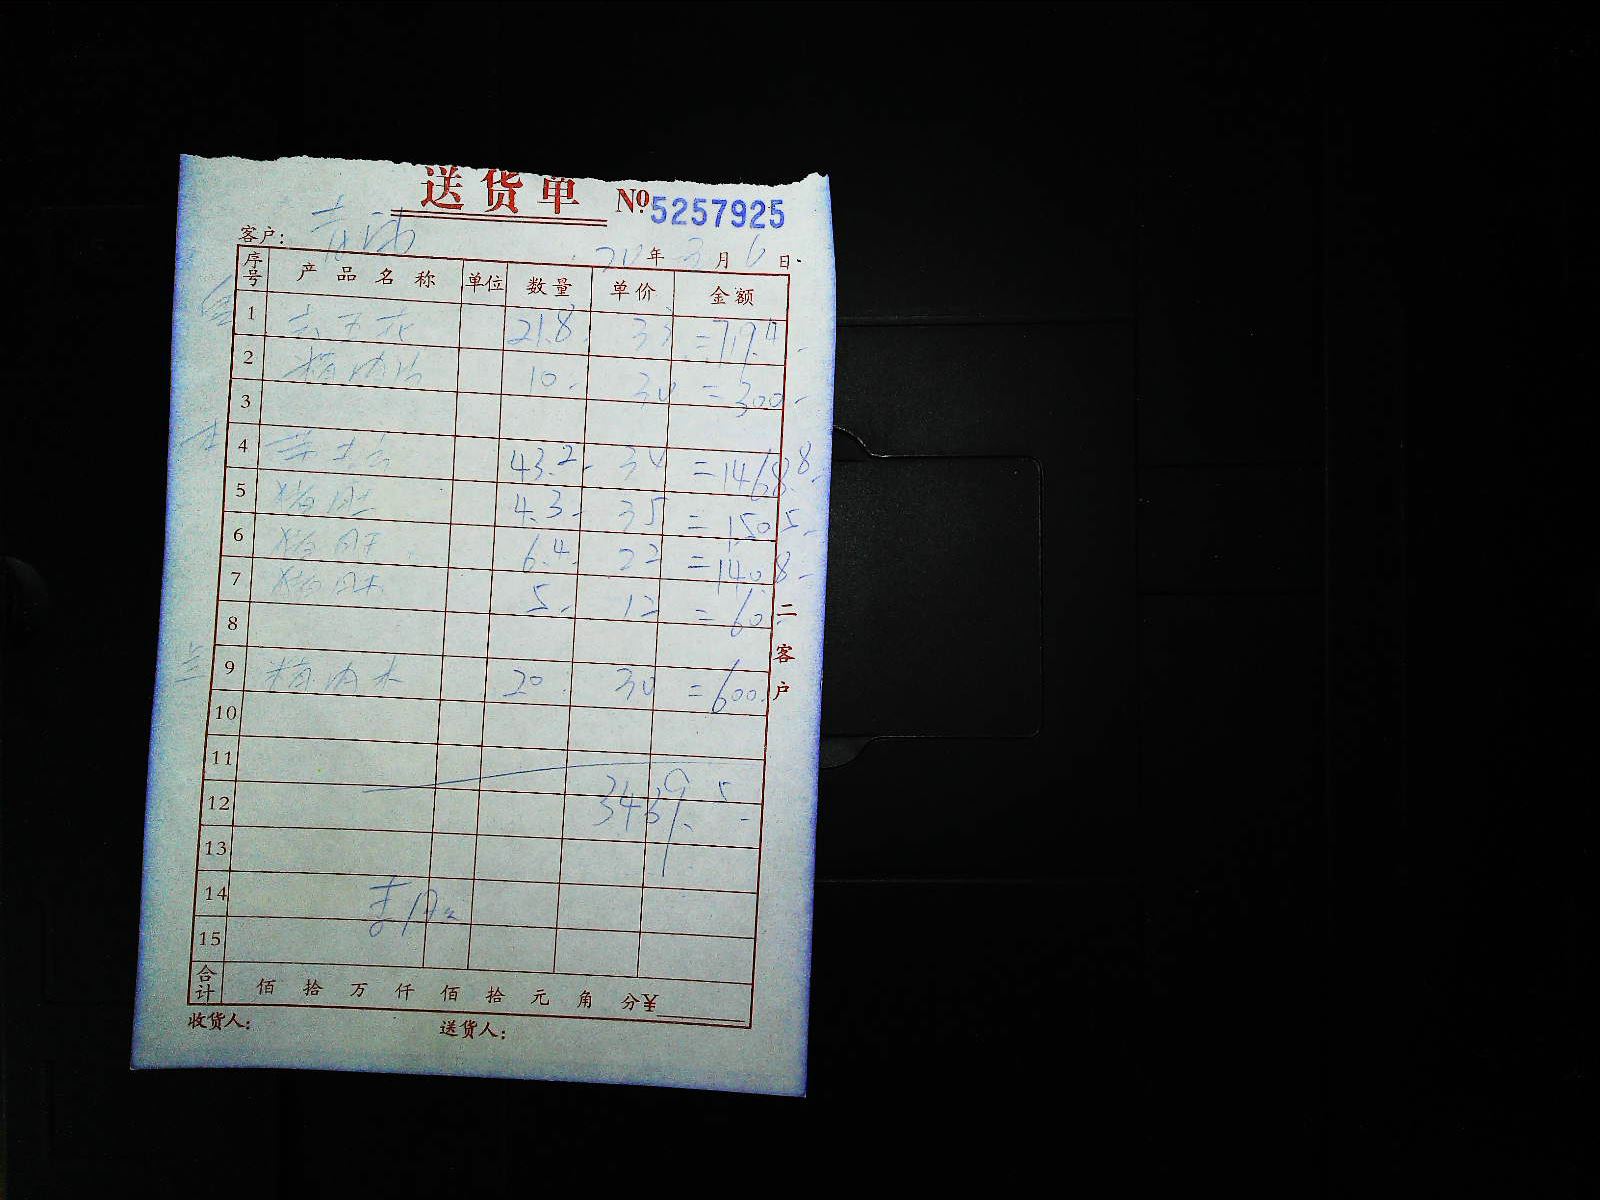 送货单 №5257925
客户： 年 3月6日
序号 产品名称 单位 数量 单价 金额
1 去五花 21.8 33 =719.4
2 精肉片 10 30 =300
3
4 43.2 34 =1468.8
5 猪肚 4.3 35 =150.5
6 猪肝 6.4 22 =140.8
7 猪 5 12 =60
8
9 精肉 20 30 =600
10
11
12 3439.5
13
14
15
合计 佰 拾 万 仟 佰 拾 元 角 分¥
收货人： 送货人：
二客户